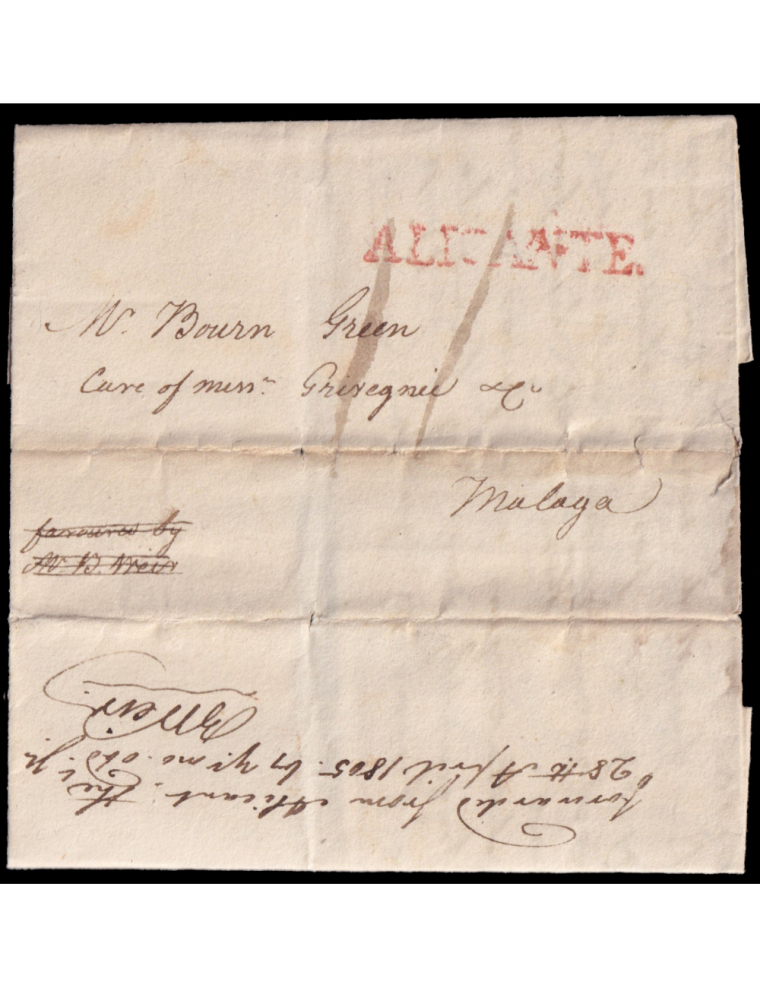 ALICANTE.
Mr. Bourn Green
Care of messrs. Grivegnie &Co
Malaga
favoured by
Mr. B. Weir
Forwarded from Alicant the
28th April 1805. by yr. mo. ob. 
BWeir